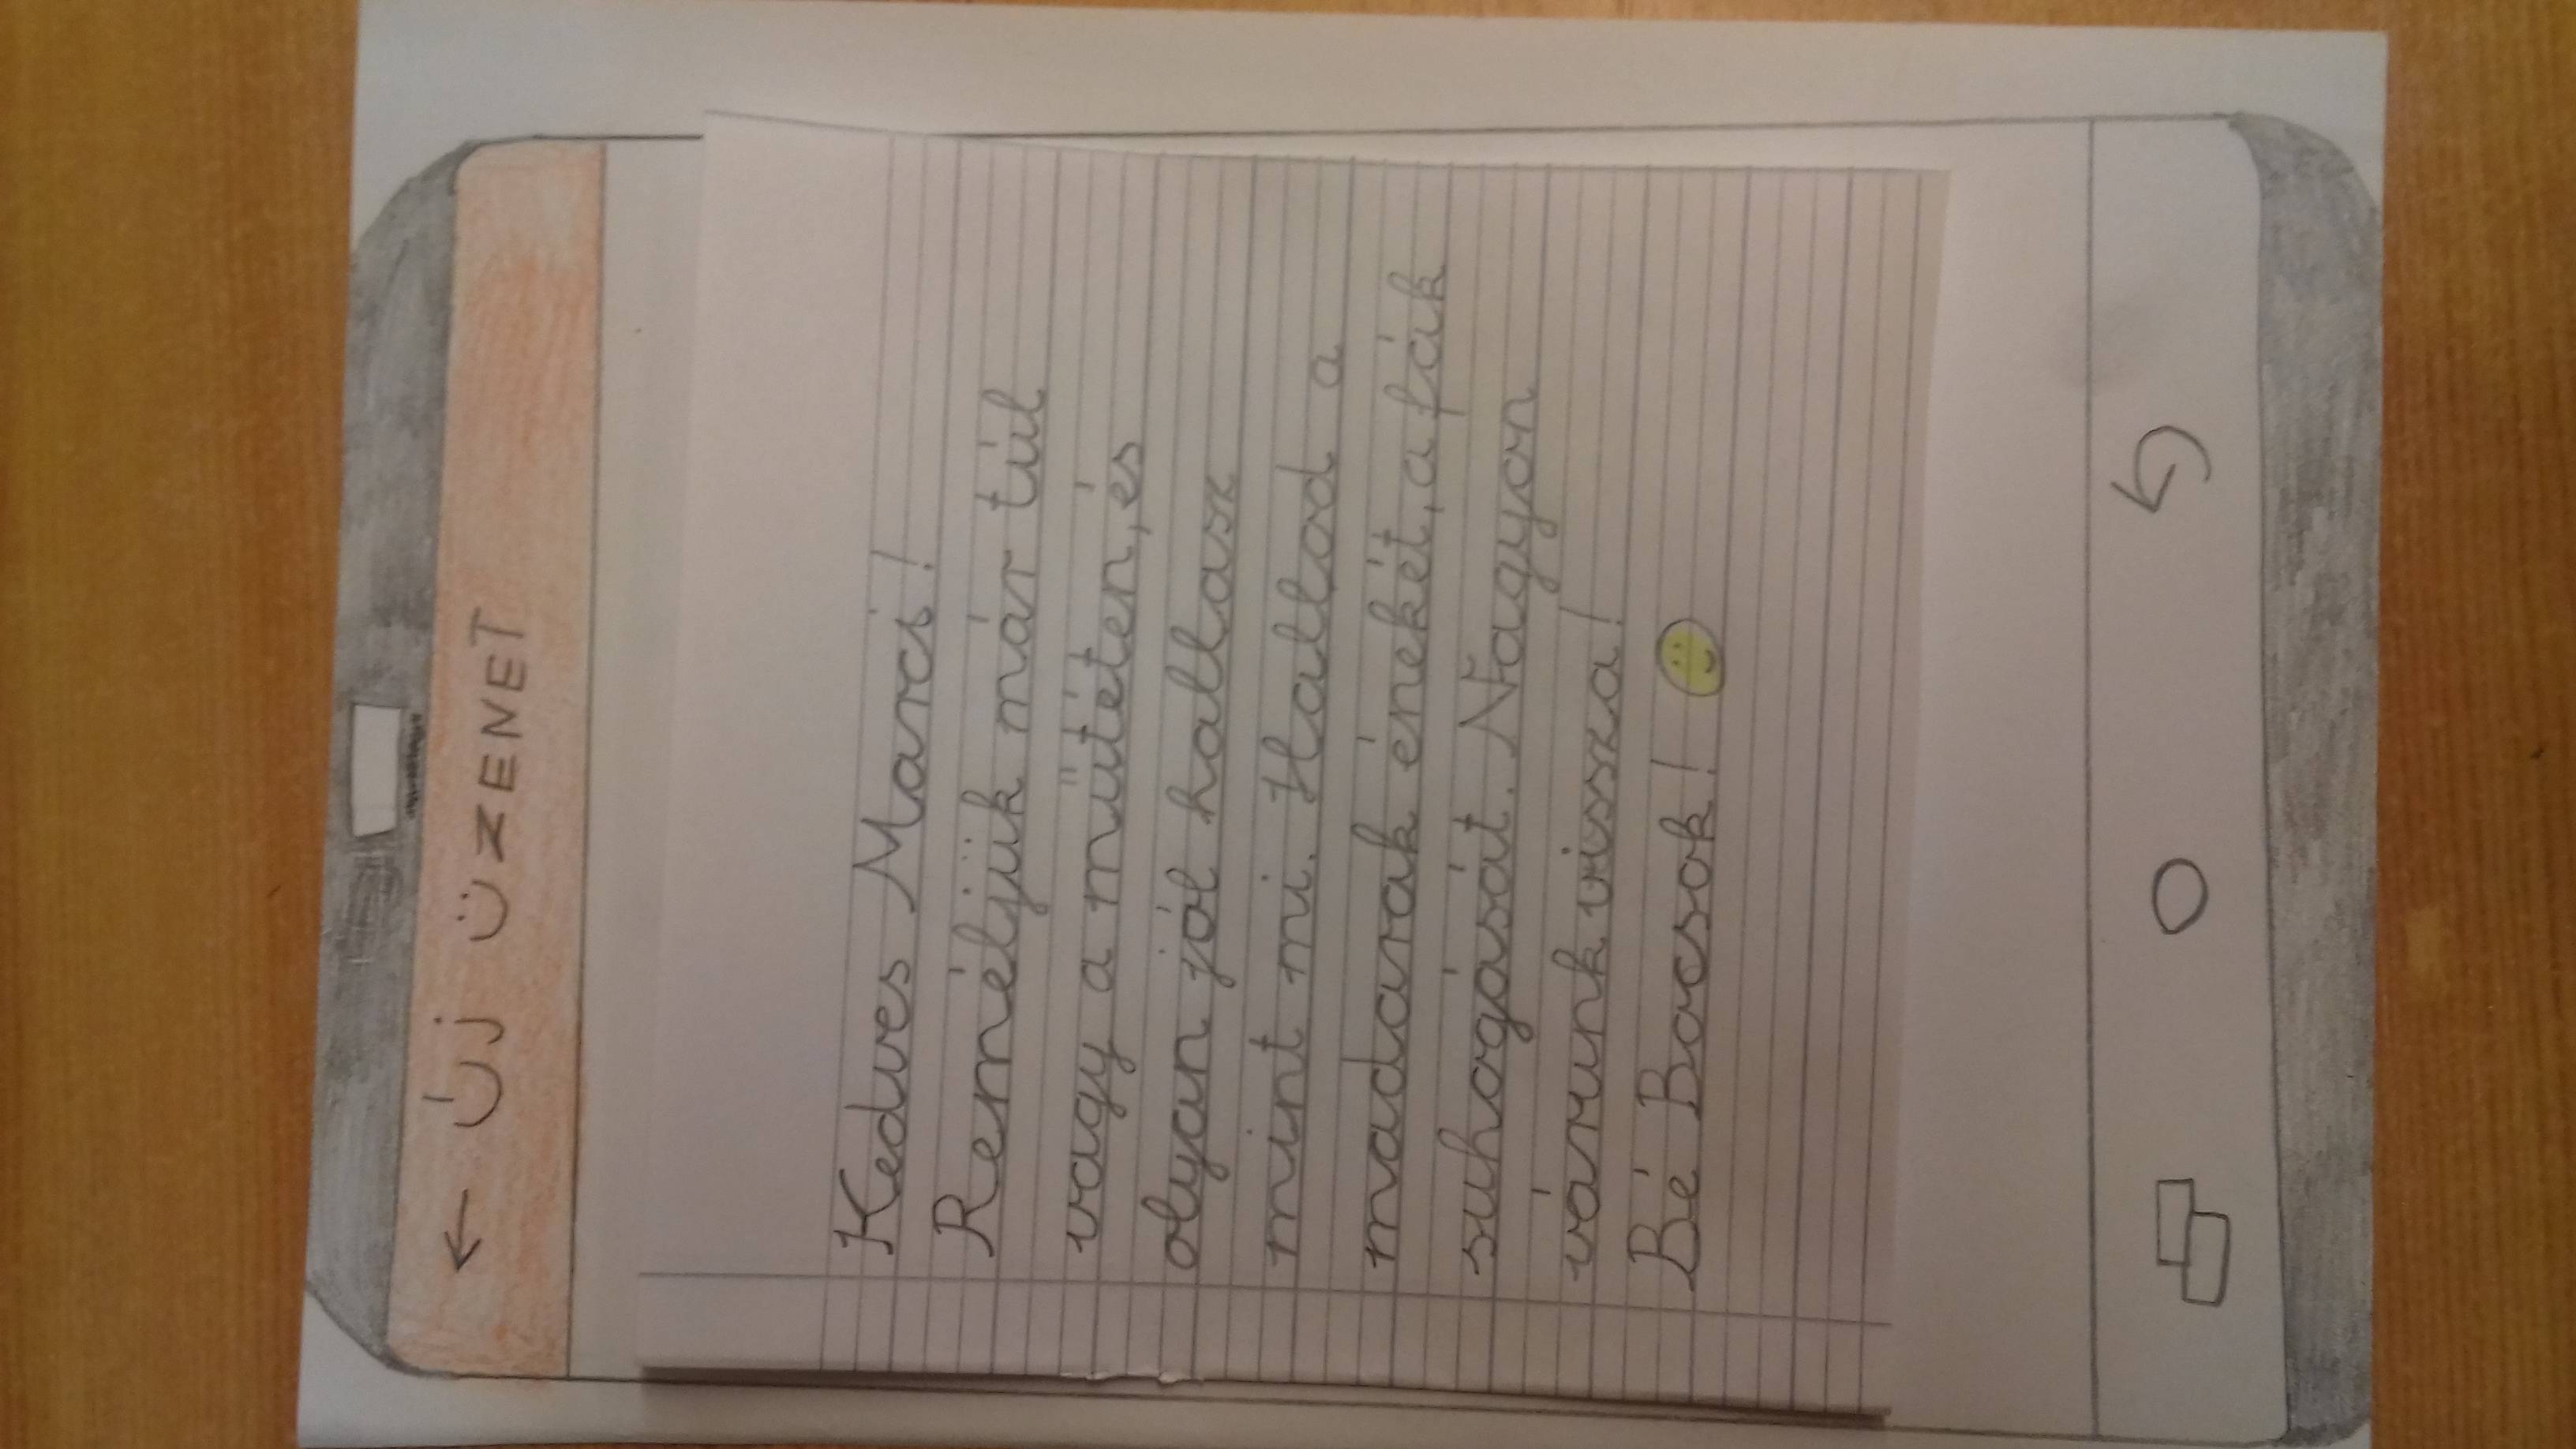 ← Új ÜZENET
Kedves Marci!
Reméljük már túl
vagy a műtéten, és
olyan jól hallasz
mint mi. Hallod a
madarak énekét, a fák
suhogását. Nagyon
várunk vissza!
Bé Bocsok!